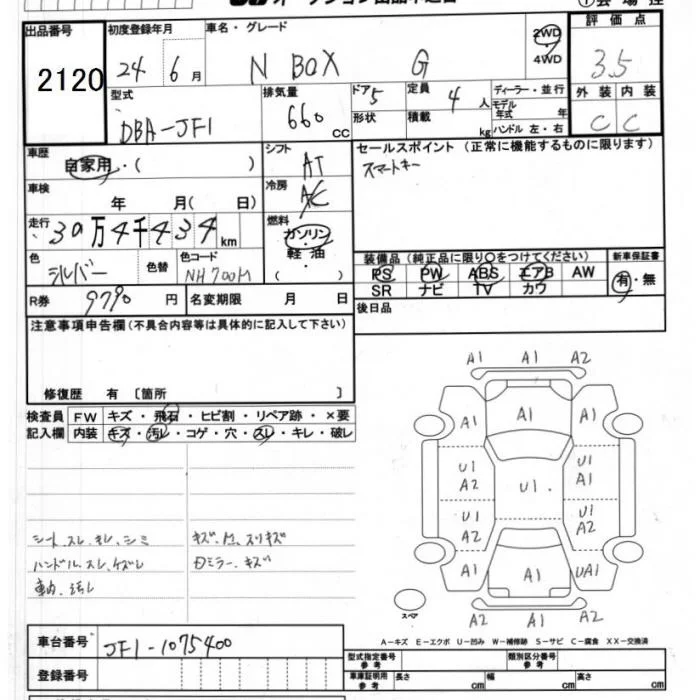 出品番号 2120
初度登録年月 24年 6月
車名・グレード N BOX G
2WD
4WD
評価点 3.5
型式 DBA-JF1
排気量 660 cc
ドア 5
形状
定員 4人
積載 kg
ディーラー・並行
モデル年式 年
ハンドル 左・右
外装 内装
C C
車歴 自家用・( )
シフト AT
セールスポイント (正常に機能するものに限ります)
スマートキー
車検 年 月( 日)
冷房 AC
走行 30万4千434km
燃料 ガソリン
軽油
( ・ )
色 シルバー 色替 色コード NH700M
装備品 (純正品に限り○をつけてください)
新車保証書
PS PW ABS エアB AW
SR ナビ TV カワ
有・無
R券 9790円 名変期限 月 日
後日品
注意事項申告欄(不具合内容等は具体的に記入して下さい)
修復歴 有 〔箇所 〕
検査員 FW キズ・飛石・ヒビ割・リペア跡・×要
記入欄 内装 キズ・汚レ・コゲ・穴・スレ・キレ・破レ
シート、スレ、キレ、シミ
ハンドル、スレ、ケズレ
車内、汚レ
キズ、凹、スリキズ
Dミラー、キズ
A1 A1 A2
A1 A1 A1
U1 U1
A2 U1. A1
U1 U1
A2 A2
A1 A1 UA1
A2 A1 A2
スペア
A-キズ E-エクボ U-凹み W-補修跡 S-サビ C-腐食 XX-交換済
車台番号 JF1-1075400
型式指定番号 参考
類別区分番号 参考
登録番号
車庫証明用 参考 長さ cm 幅 cm 高さ cm